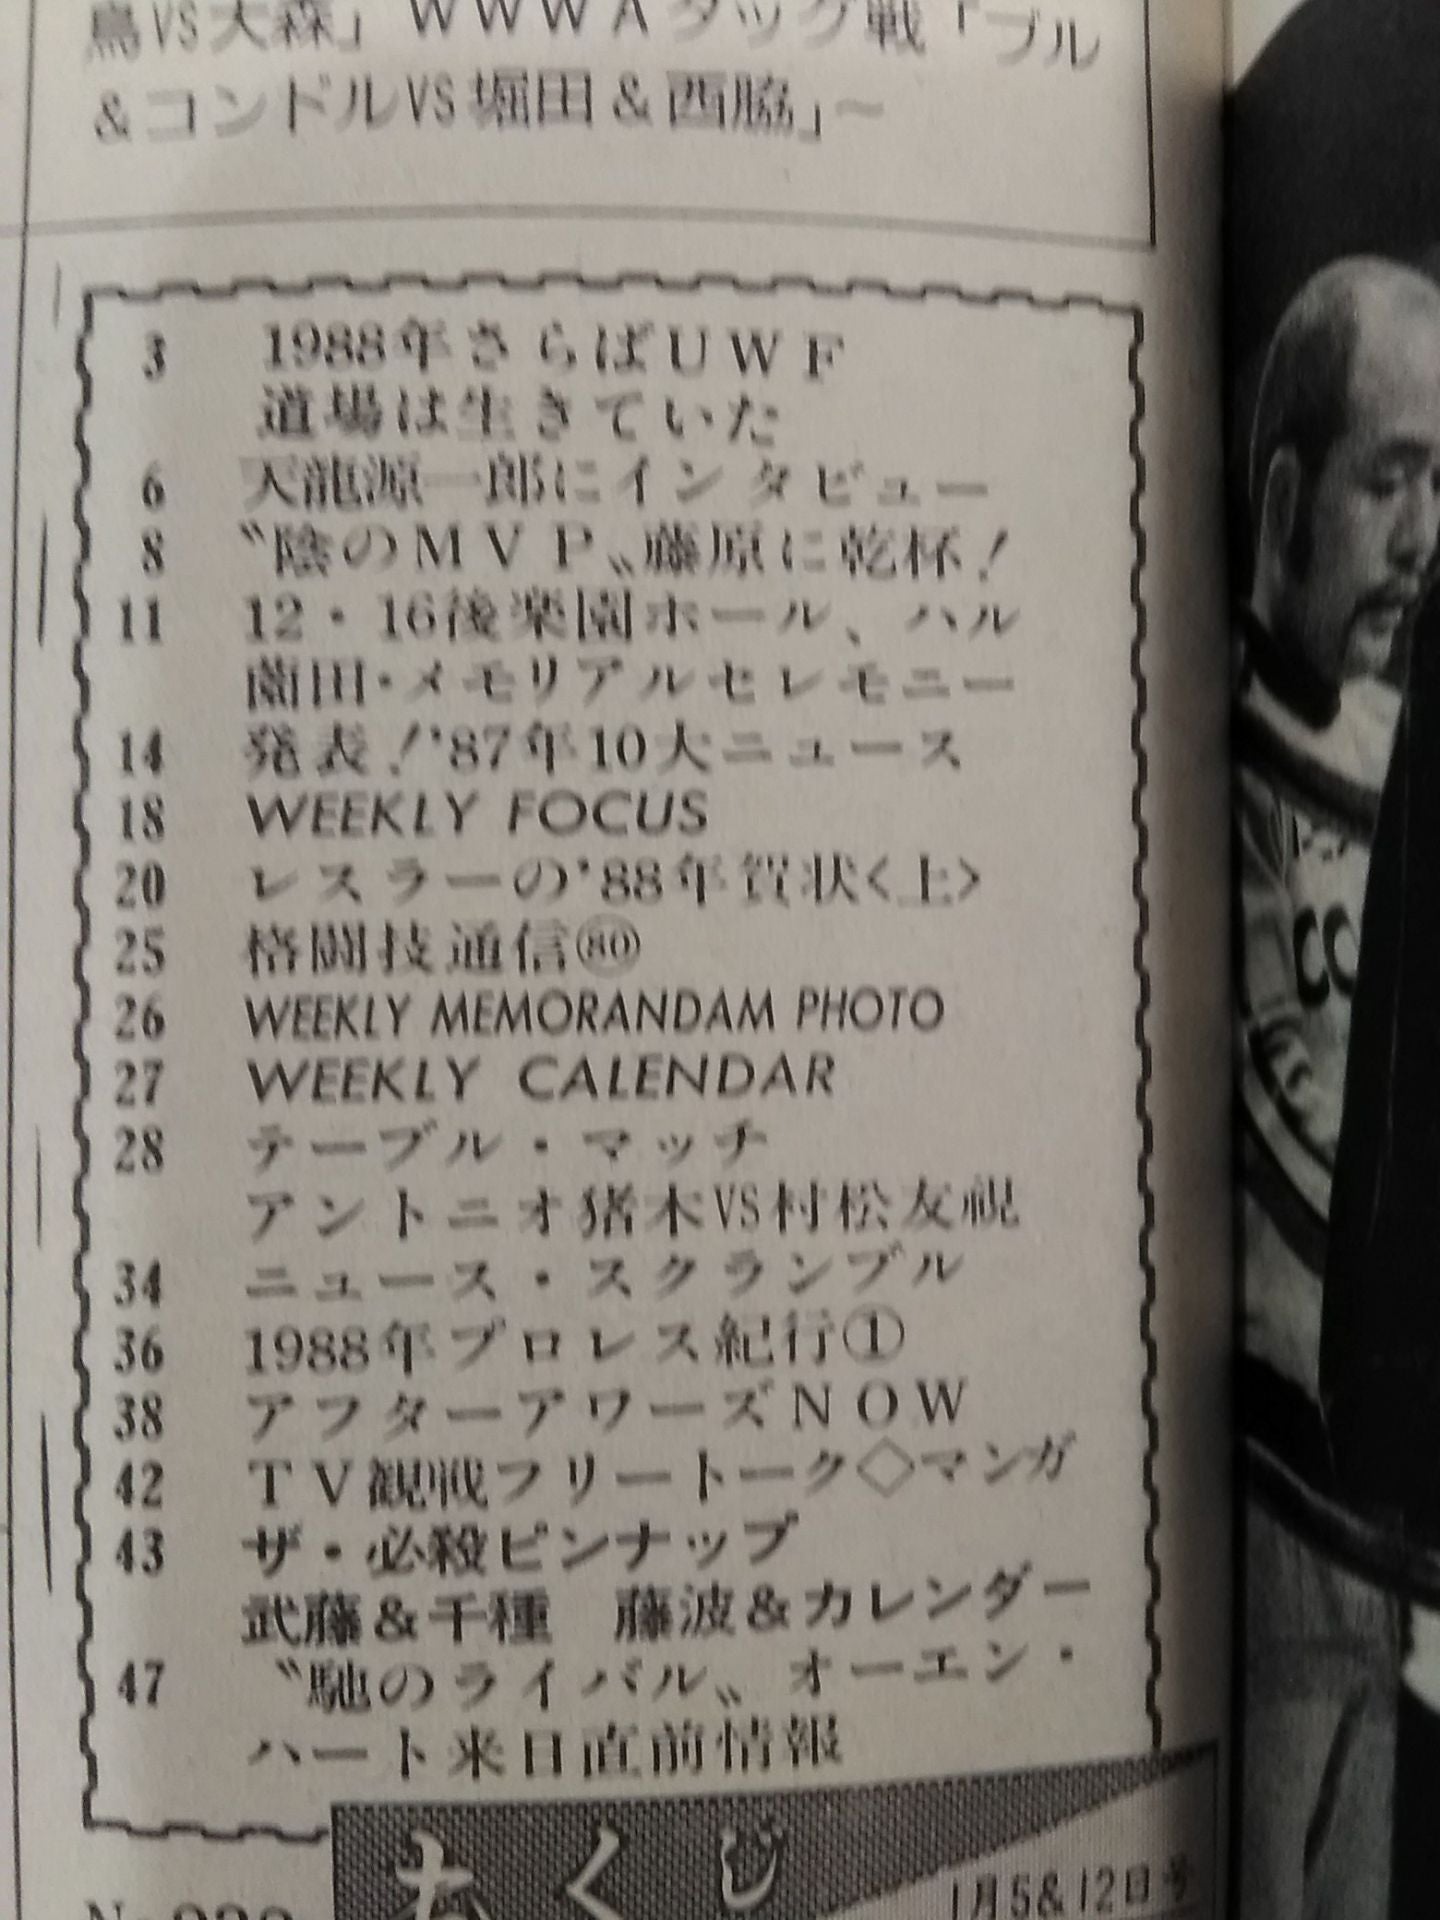 鳥VS大森」WWWAタッグ戦「ブル
&コンドルVS堀田&西脇」~
3 1988年さらばUWF
道場は生きていた
6 天龍源一郎にインタビュー
8 〝陰のMVP〟藤原に乾杯!
11 12・16後楽園ホール、ハル
薗田・メモリアルセレモニー
14 発表!'87年10大ニュース
18 WEEKLY FOCUS
20 レスラーの'88年賀状<上>
25 格闘技通信㊿
26 WEEKLY MEMORANDAM PHOTO
27 WEEKLY CALENDAR
28 テーブル・マッチ
アントニオ猪木VS村松友視
34 ニュース・スクランブル
36 1988年プロレス紀行①
38 アフターアワーズNOW
42 TV観戦フリートーク◇マンガ
43 ザ・必殺ピンナップ
武藤&千種 藤波&カレンダー
47 〝馳のライバル〟オーエン・
ハート来日直前情報
もくじ
1月5&12日号
CO